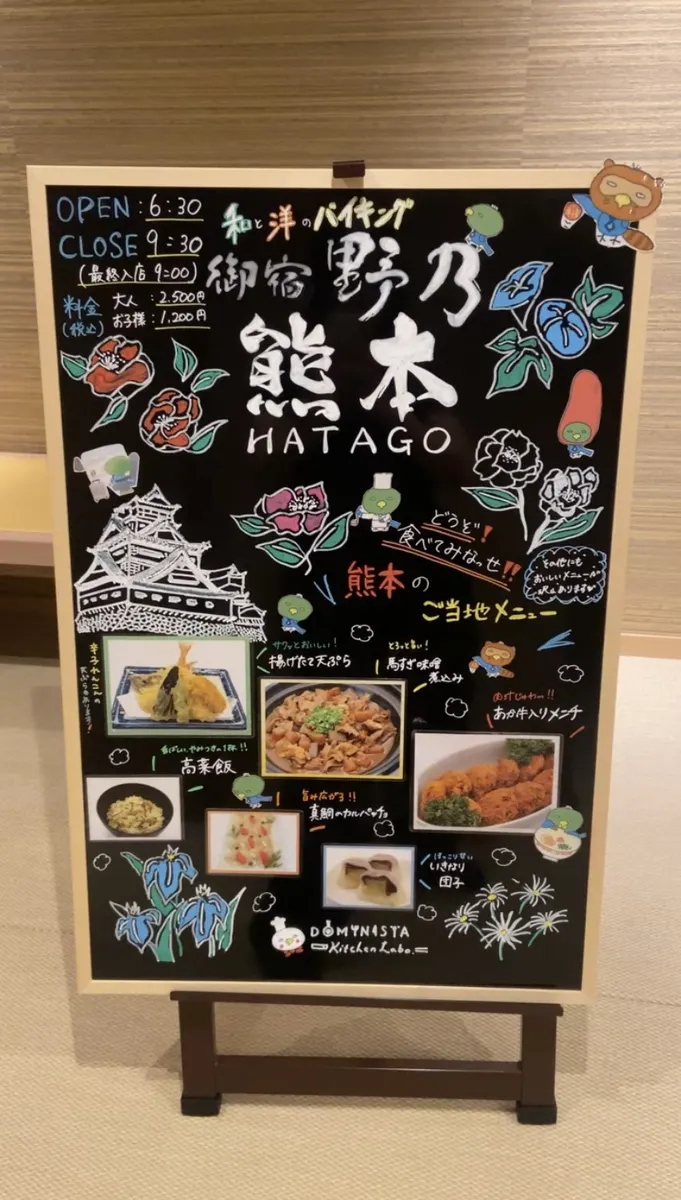 OPEN : 6:30
CLOSE 9:30
(最終入店 9:00)
料金 大人 : 2,500円
(税込) お子様 : 1,200円
和と洋のバイキング
御宿 野乃
熊本
HATAGO
どうぞ!
食べてみなっせ!!
その他にも
おいしいメニューが
沢山ありますが
熊本の
ご当地メニュー
辛子れんこんの
天ぷらもあります!
サクッとおいしい!
揚げたて天ぷら
とろっと旨い!
馬すぎ味噌
煮込み
あか牛入りメンチ
香ばしい、やみつきの1杯!!
高菜飯
旨み広がる!!
真鯛のカルパッチョ
ほっこり甘い
いきなり
団子
DOMINISTA
Kitchen Labo.